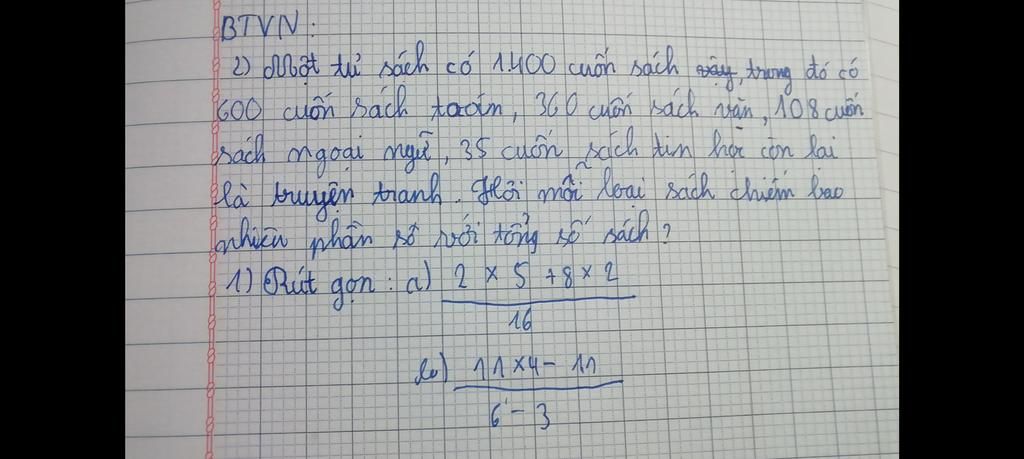 BTVN:
2) Một tủ sách có 1400 cuốn sách, trong đó có
600 cuốn sách toán, 360 cuốn sách văn, 108 cuốn
sách ngoại ngữ, 35 cuốn sách tin học còn lại
là truyện tranh. Hỏi mỗi loại sách chiếm bao
nhiêu phần số với tổng số sách?
1) Rút gọn: a) 2 × 5 + 8 × 2
16
b) 11 × 4 - 11
6 - 3